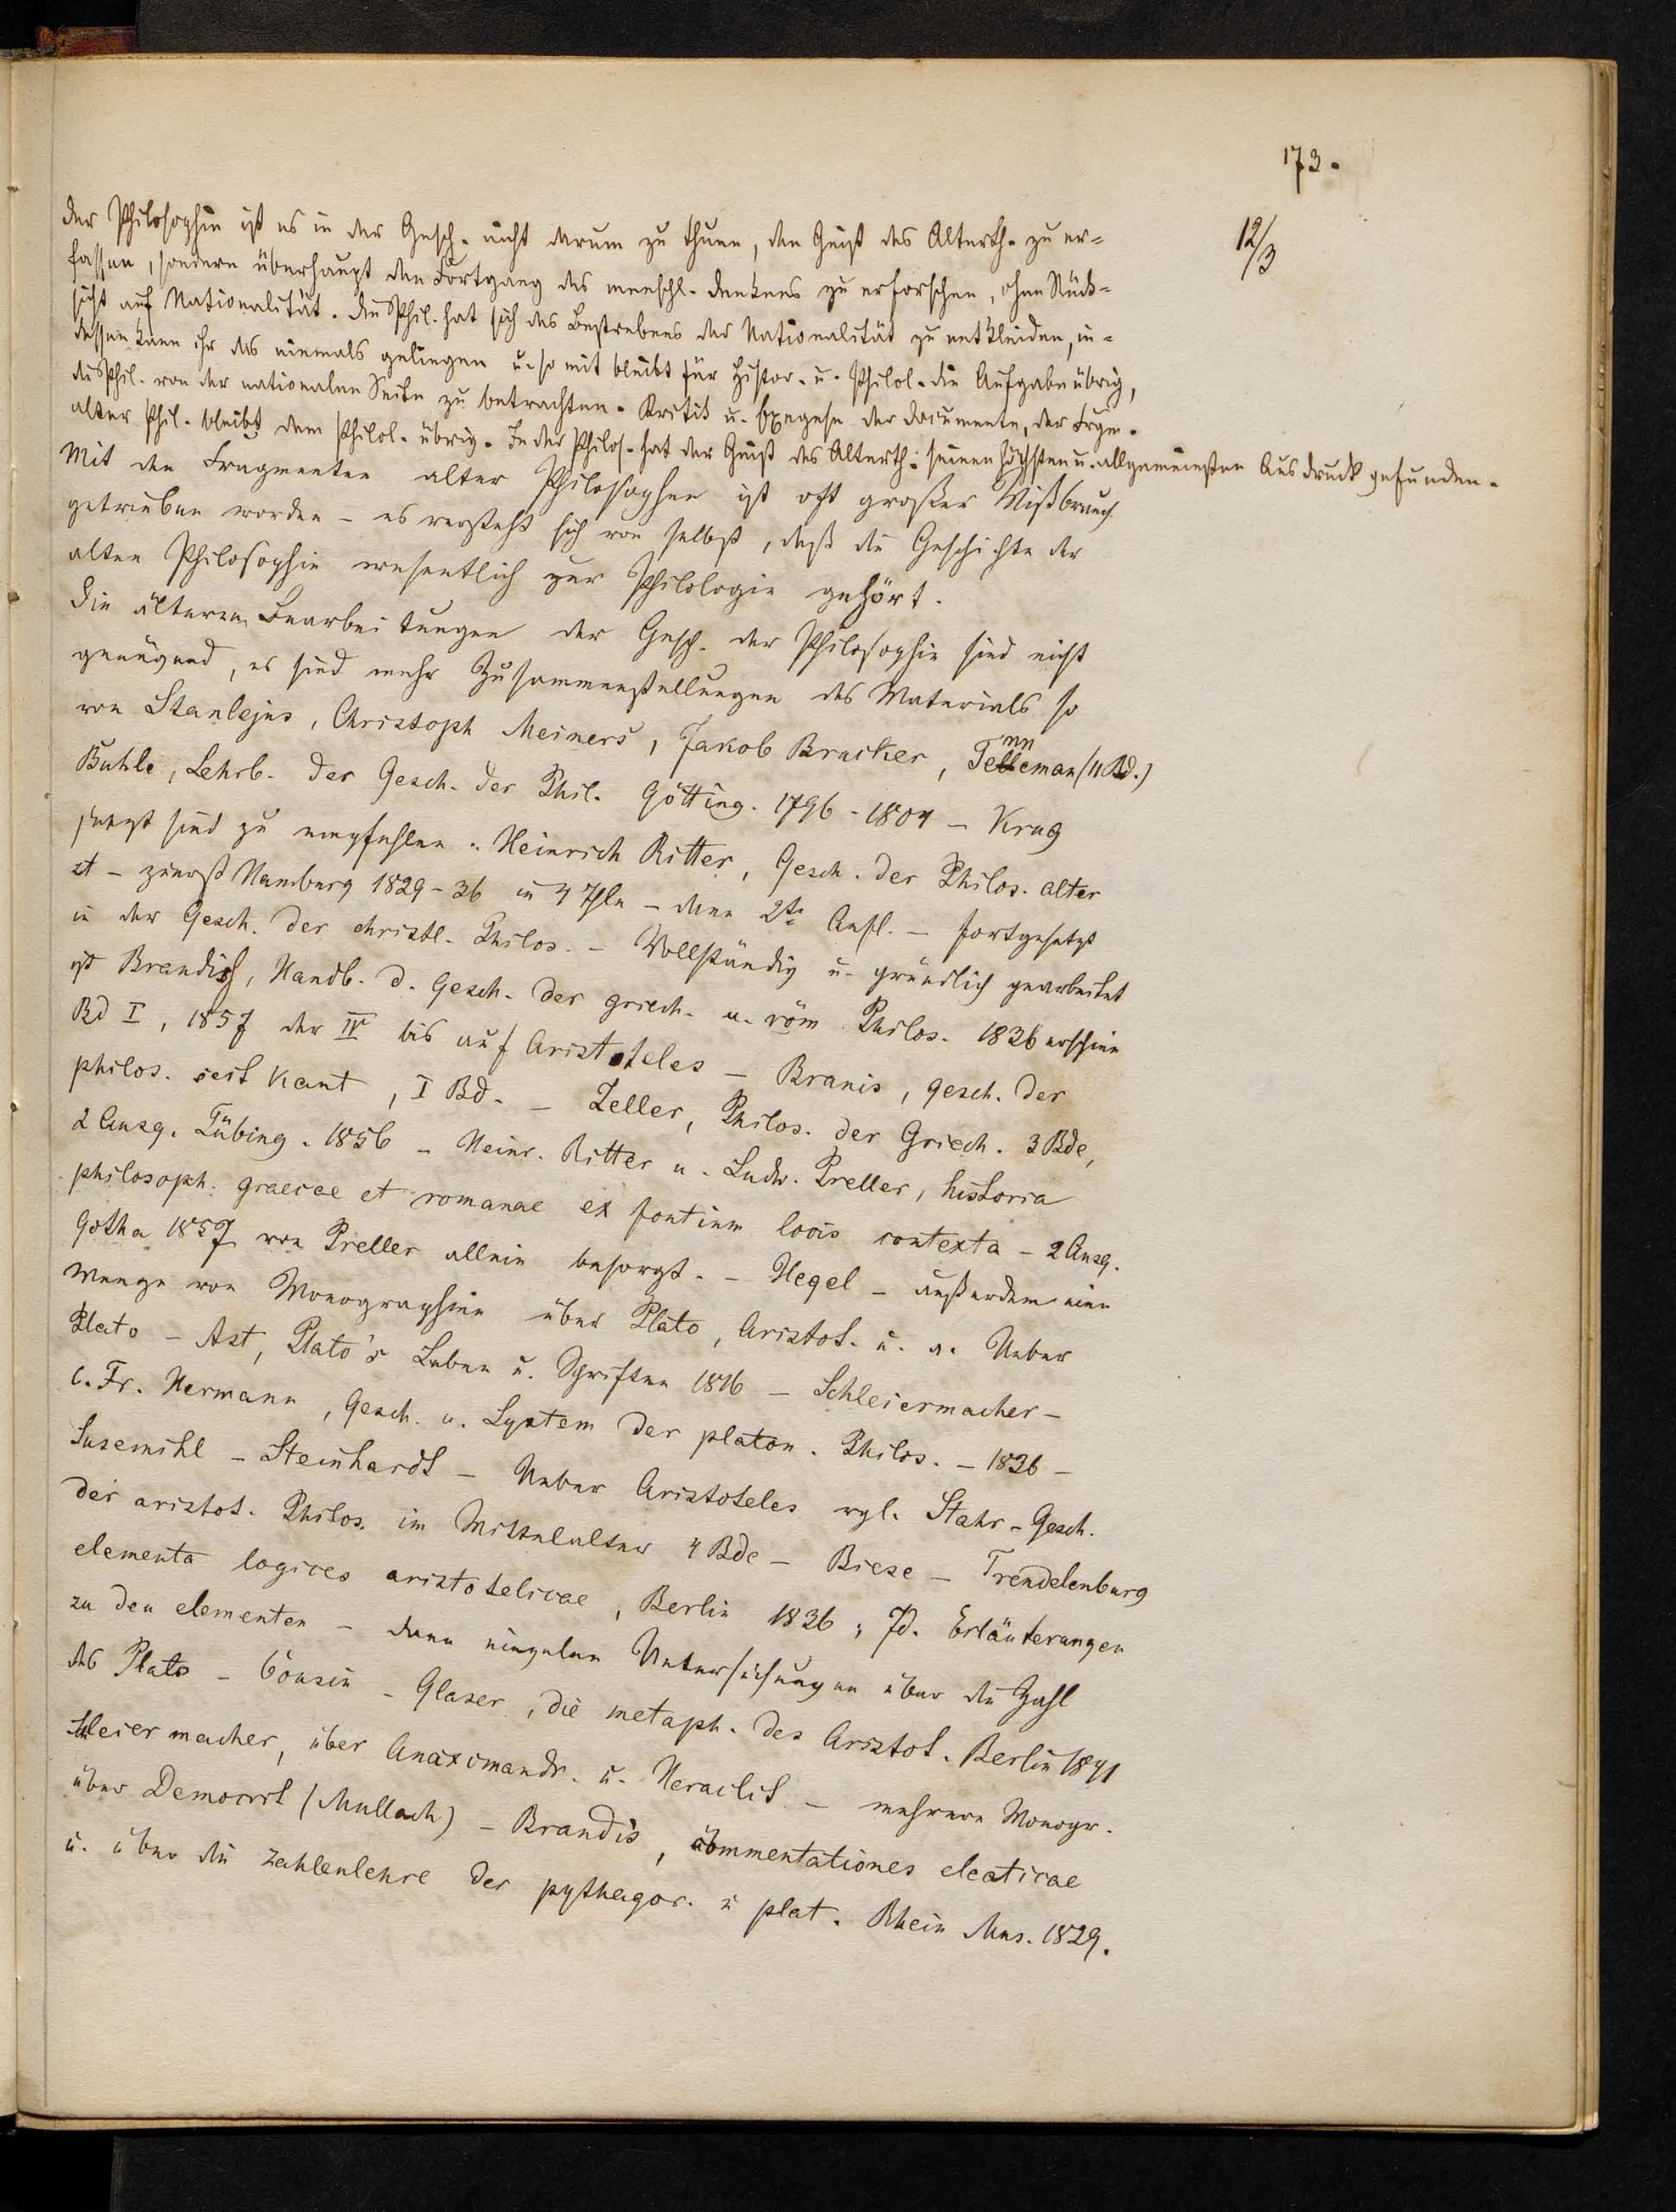 173.
12/3
der Philosophie ist es in der Gesch. nicht darum zu thuen, den Geist des Alterth. zu er=
fassen, sondern überhaupt den Fortgang des menschl. Denkens zu erforschen, ohne Rück=
sicht auf Nationalität. Die Phil. hat sich des Bestrebens der Nationalität zu entkleiden, in=
dessen kann ihr das niemals gelingen u. so mit bleibt für Histor. u. Philol. die Aufgabe übrig,
die Phil. von der nationalen Seite zu betrachten. Kritik u. Exegese der Documente, der Frgm.
alter Phil. bleibt dem Philol. übrig. In der Philos. hat der Geist des Alterth. seinen höchsten u. allgemeinsten Ausdruck gefunden.
Mit den Fragmenten alter Philosophen ist oft großer Mißbrauch
getrieben worden – es versteht sich von selbst, daß die Geschichte der
alten Philosophie wesentlich zur Philologie gehört.
Die älteren Bearbeitungen der Gesch. der Philosophie sind nicht
genügend, es sind mehr Zusammenstellungen des Materials so
von Stanlejus, Christoph Meiners, Jakob Brucker, Tenneman (11 Bd.)
Buhle, Lehrb. der Gesch. der Phil. Götting. 1796 - 1804 – Krug
jetzt sind zu empfehlen. Heinrich Ritter, Gesch. der Philos. alter
Zt – zuerst Hamburg 1829-36 in 4 Thln – dann 2te Aufl. – fortgesetzt
in der Gesch. der christl. Philos. – Vollständig u. gründlich gearbeitet
ist Brandis, Handb. d. Gesch. der griech. u. röm Philos. 1836 erschien
Bd I, 1857 der IV bis auf Aristoteles – Branis, gesch. der
philos. seit Kant, I Bd. – Zeller, Philos. der Griech. 3 Bde,
2 Ausg. Tübing. 1856 – Heinr. Ritter u. Ludw. Preller, historia
philosoph. graecae et romanae ex fontium locis contexta – 2 Ausg.
Gotha 1857 von Preller allein besorgt. – Hegel – außerdem eine
Menge von Monographien über Plato, Aristot. u. a. Ueber
Plato – Ast, Plato's Leben u. Schriften 1816 – Schleiermacher –
C. Fr. Hermann, Gesch. u. System der platon. Philos. – 1836 –
Susemihl – Steinhardt – Ueber Aristoteles vgl. Stahr – Gesch.
der aristot. Philos. im Mittelalter 4 Bde – Biese – Trendelenburg
elementa logices aristotelicae, Berlin 1836; Jd. Erläuterungen
zu den elementen – dann einzelne Untersuchungen über die Zahl
des Plato – Cousin – Glaser, die metaph. des Aristot. Berlin 1841
Schleiermacher, über Anaximandr. u. Heraclit – mehrere Monogr.
über Democrit (Mullach) – Brandis, commentationes eleaticae
u. über die Zahlenlehre der pythagor. u plat. Rhein Mus. 1829.